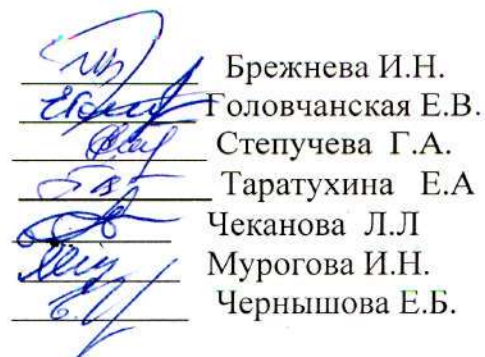 Брежнева И.Н.
Головчанская Е.В.
Степучева Г.А.
Таратухина Е.А
Чеканова Л.Л
Мурогова И.Н.
Чернышова Е.Б.